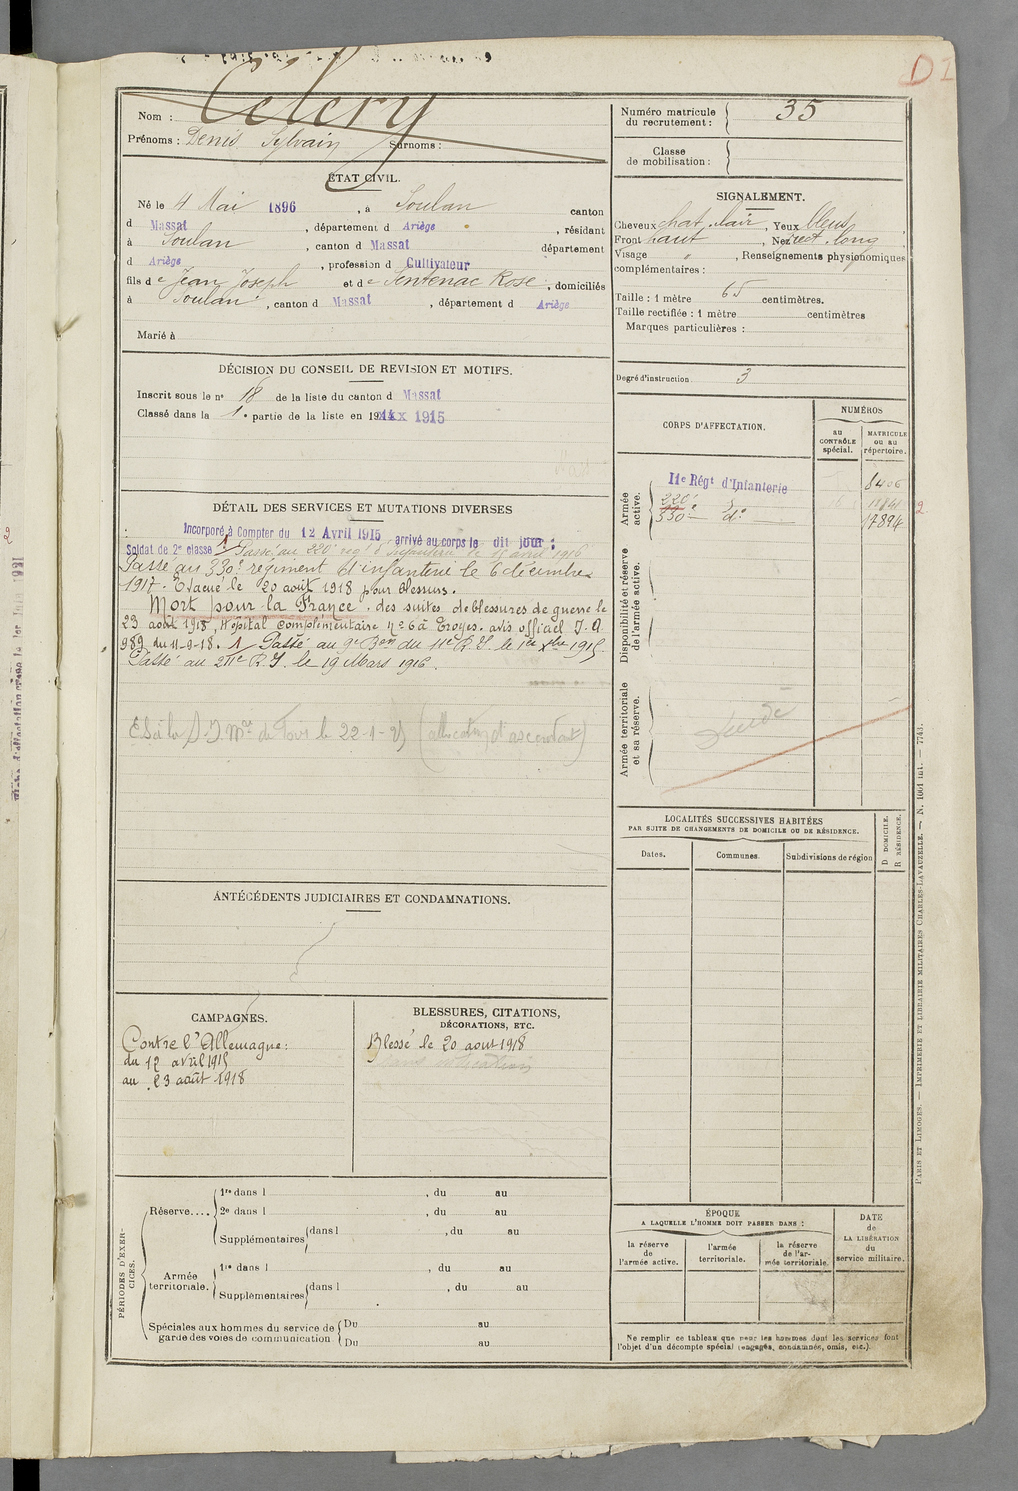 DI
Nom : Célery
Prénoms : Denis Sylvain Surnoms :
ÉTAT CIVIL.
Né le 4 Mai 1896, à Soulan canton
d Massat, département d Ariège, résidant
à Soulan, canton d Massat département
d Ariège, profession d Cultivateur
fils de Jean Joseph et de Sentenac Rose, domiciliés
à Soulan, canton d Massat, département d Ariège
Marié à
DÉCISION DU CONSEIL DE REVISION ET MOTIFS.
Inscrit sous le n° 18 de la liste du canton d Massat
Classé dans la 1e partie de la liste en 1915
DÉTAIL DES SERVICES ET MUTATIONS DIVERSES
Incorporé à Compter du 12 Avril 1915 arrivé au corps le dit jour :
Soldat de 2e classe 1 Passé au 220e régt d'Infanterie le 15 avril 1916
Passé au 330e régiment d'infanterie le 6 décembre
1917. Evacué le 20 août 1918 pour blessures.
Mort pour la France. des suites de blessures de guerre le
23 août 1918, Hôpital complémentaire N° 6 à Troyes. avis officiel J. A
989 du 11-9-18. 1 Passé au 9e Bon du 11e R.I. le 1er xbre 1915
Passé au 211e R.I. le 19 Mars 1916.
(allocation d'ascendant)
ANTÉCÉDENTS JUDICIAIRES ET CONDAMNATIONS.
CAMPAGNES.
Contre l'Allemagne :
du 12 avril 1915
au 23 août 1918
BLESSURES, CITATIONS,
DÉCORATIONS, ETC.
Blessé le 20 aout 1918
PÉRIODES D'EXERCICES.
Réserve.... 1re dans l , du au
2e dans l , du au
Supplémentaires dans l , du au
Armée territoriale. 1re dans l , du au
Supplémentaires dans l , du au
Spéciales aux hommes du service de garde des voies de communication. Du au
Du au
Numéro matricule du recrutement : 35
Classe de mobilisation :
SIGNALEMENT.
Cheveux chat. clair, Yeux bleus,
Front haut, Nez rect. long
Visage " , Renseignements physionomiques
complémentaires :
Taille : 1 mètre 65 centimètres.
Taille rectifiée : 1 mètre centimètres
Marques particulières :
Degré d'instruction 3
CORPS D'AFFECTATION.
NUMÉROS
au CONTRÔLE spécial.
MATRICULE ou au répertoire.
Armée active.
11e Régt d'Infanterie 8406
220e
330e do 17894
Disponibilité et réserve de l'armée active.
Armée territoriale et sa réserve.
LOCALITÉS SUCCESSIVES HABITÉES
PAR SUITE DE CHANGEMENTS DE DOMICILE OU DE RÉSIDENCE.
Dates. Communes. Subdivisions de région
D DOMICILE.
R RÉSIDENCE.
ÉPOQUE
A LAQUELLE L'HOMME DOIT PASSER DANS :
la réserve de l'armée active.
l'armée territoriale.
la réserve de l'armée territoriale.
DATE de LA LIBÉRATION du service militaire.
Ne remplir ce tableau que pour les hommes dont les services font
l'objet d'un décompte spécial (engagés, condamnés, omis, etc.).
PARIS ET LIMOGES. — IMPRIMERIE ET LIBRAIRIE MILITAIRES CHARLES-LAVAUZELLE. — N. 1001 int. — 7743.